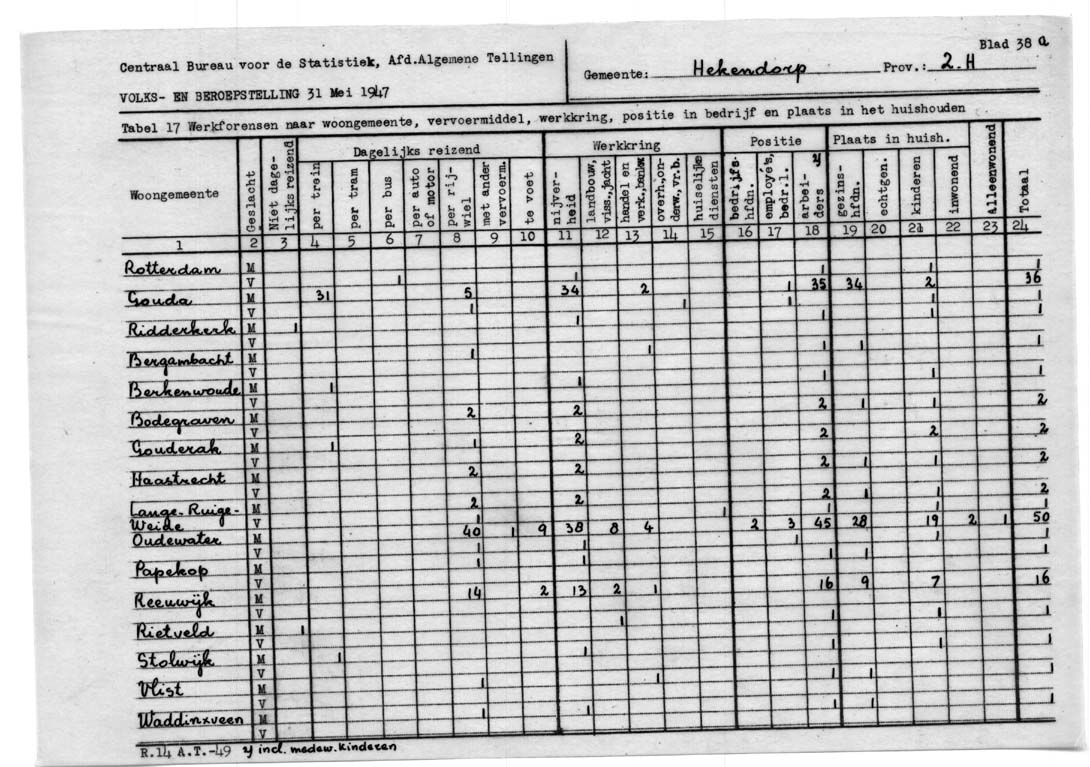 Blad 38 a
Centraal Bureau voor de Statistiek, Afd.Algemene Tellingen
Gemeente: Hekendorp Prov.: Z.H
VOLKS- EN BEROEPSTELLING 31 Mei 1947
Tabel 17 Werkforensen naar woongemeente, vervoermiddel, werkkring, positie in bedrijf en plaats in het huishouden
Dagelijks reizend Werkkring Positie Plaats in huish.
Woongemeente Geslacht Niet dage-lijks reizend per trein per tram per bus per auto of motor per rij-wiel met ander vervoerm. te voet nijver-heid landbouw, viss.,jacht handel en verk.,bankw. overh.,on-derw.,vr.b. huiselijke diensten bedrijfs-hfdn. employe's, bedr.l. arbei-ders 1) gezins-hfdn. echtgen. kinderen inwonend Alleenwonend Totaal
1 2 3 4 5 6 7 8 9 10 11 12 13 14 15 16 17 18 19 20 21 22 23 24
Rotterdam M 1 1 1 1 1
V
Gouda M 31 5 34 2 1 35 34 2 36
V 1 1 1 1 1
Ridderkerk M 1 1 1 1 1
V
Bergambacht M 1 1 1 1 1
V
Berkenwoude M 1 1 1 1 1
V
Bodegraven M 2 2 2 1 1 2
V
Gouderak M 1 1 2 2 2 2
V
Haastrecht M 2 2 2 1 1 2
V
Lange-Ruige- M 2 2 2 1 1 2
Weide V 1 1 1 1 1
Oudewater M 40 1 9 38 8 4 2 3 45 28 19 2 1 50
V 1 1 1 1 1
Papekop M 1 1 1 1 1
V
Reeuwijk M 14 2 13 2 1 16 9 7 16
V
Rietveld M 1 1 1 1 1
V
Stolwijk M 1 1 1 1 1
V
Vlist M 1 1 1 1 1
V
Waddinxveen M 1 1 1 1 1
V
R.14 A.T.-49 1) incl. medew. Kinderen